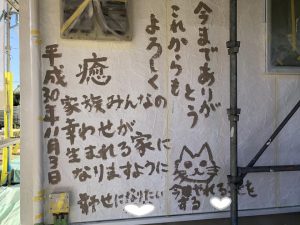 今までありが
とう
これからも
よろしく
癒
家族みんなの
幸わせが
生まれる家に
なりますように
幸せになりたい
平成30年11月3日